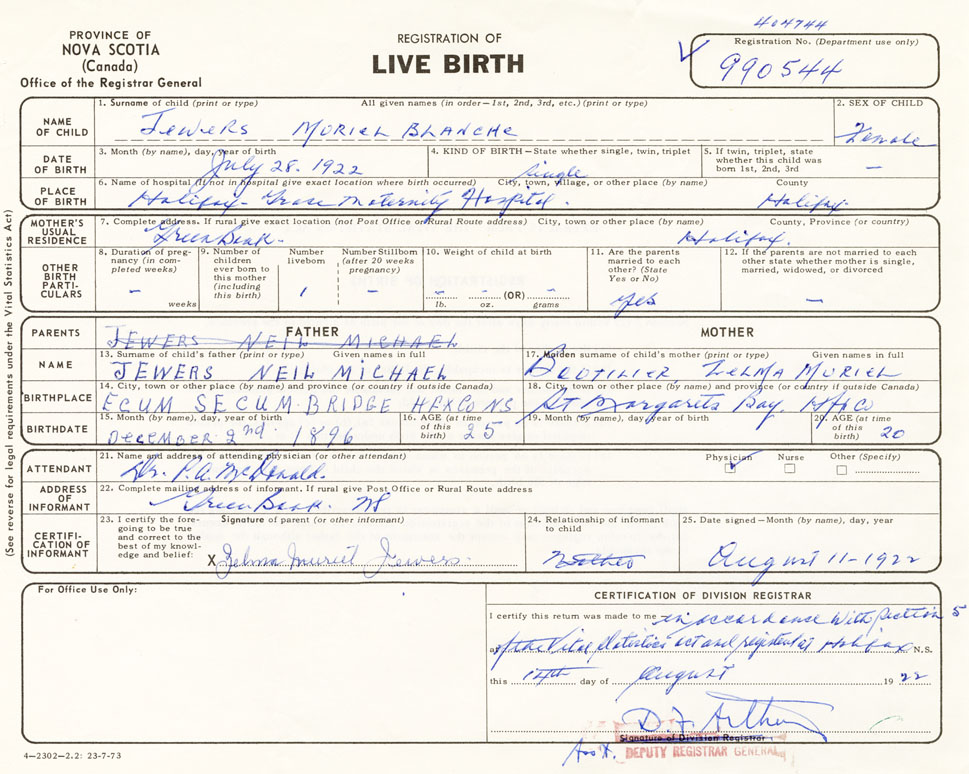 404744
PROVINCE OF
NOVA SCOTIA
(Canada)
Office of the Registrar General
REGISTRATION OF
LIVE BIRTH
Registration No. (Department use only)
990544
NAME OF CHILD
1. Surname of child (print or type) All given names (in order—1st, 2nd, 3rd, etc.) (print or type)
JEWERS MURIEL BLANCHE
2. SEX OF CHILD
Female
DATE OF BIRTH
3. Month (by name), day, year of birth
July 28. 1922
4. KIND OF BIRTH—State whether single, twin, triplet
single
5. If twin, triplet, state whether this child was born 1st, 2nd, 3rd
—
PLACE OF BIRTH
6. Name of hospital (If not in hospital give exact location where birth occurred) City, town, village, or other place (by name) County
Halifax - Grace Maternity Hospital. Halifax.
MOTHER'S USUAL RESIDENCE
7. Complete address. If rural give exact location (not Post Office or Rural Route address) City, town or other place (by name) County, Province (or country)
Green Bank. Halifax.
OTHER BIRTH PARTICULARS
8. Duration of pregnancy (in completed weeks)
— weeks
9. Number of children ever born to this mother (including this birth)
Number liveborn
1
Number Stillborn (after 20 weeks pregnancy)
—
10. Weight of child at birth
— lb. — oz. (OR) — grams
11. Are the parents married to each other? (State Yes or No)
yes
12. If the parents are not married to each other state whether mother is single, married, widowed, or divorced
—
PARENTS
FATHER
JEWERS NEIL MICHAEL
MOTHER
NAME
13. Surname of child's father (print or type) Given names in full
JEWERS NEIL MICHAEL
17. Maiden surname of child's mother (print or type) Given names in full
BOUTILIER, ZELMA MURIEL
BIRTHPLACE
14. City, town or other place (by name) and province (or country if outside Canada)
ECUM SECUM BRIDGE HFXCO NS
18. City, town or other place (by name) and province (or country if outside Canada)
St Margarets Bay Hfx Co
BIRTHDATE
15. Month (by name), day, year of birth
DECEMBER 2nd, 1896
16. AGE (at time of this birth)
25
19. Month (by name), day, year of birth
20. AGE (at time of this birth)
20
ATTENDANT
21. Name and address of attending physician (or other attendant)
Dr. P.A. McDonald.
Physician Nurse Other (Specify)
ADDRESS OF INFORMANT
22. Complete mailing address of informant. If rural give Post Office or Rural Route address
Green Bank. NS
CERTIFICATION OF INFORMANT
23. I certify the foregoing to be true and correct to the best of my knowledge and belief:
Signature of parent (or other informant)
X Zelma Muriel Jewers.
24. Relationship of informant to child
Mother
25. Date signed—Month (by name), day, year
August 11-1922
For Office Use Only:
CERTIFICATION OF DIVISION REGISTRAR
I certify this return was made to me in accordance with Section 5
of the Vital Statistics act and registered at Halifax N.S.
this 14th day of August 1922
Signature of Division Registrar
DEPUTY REGISTRAR GENERAL
4—2302—2.2: 23-7-73
(See reverse for legal requirements under the Vital Statistics Act)